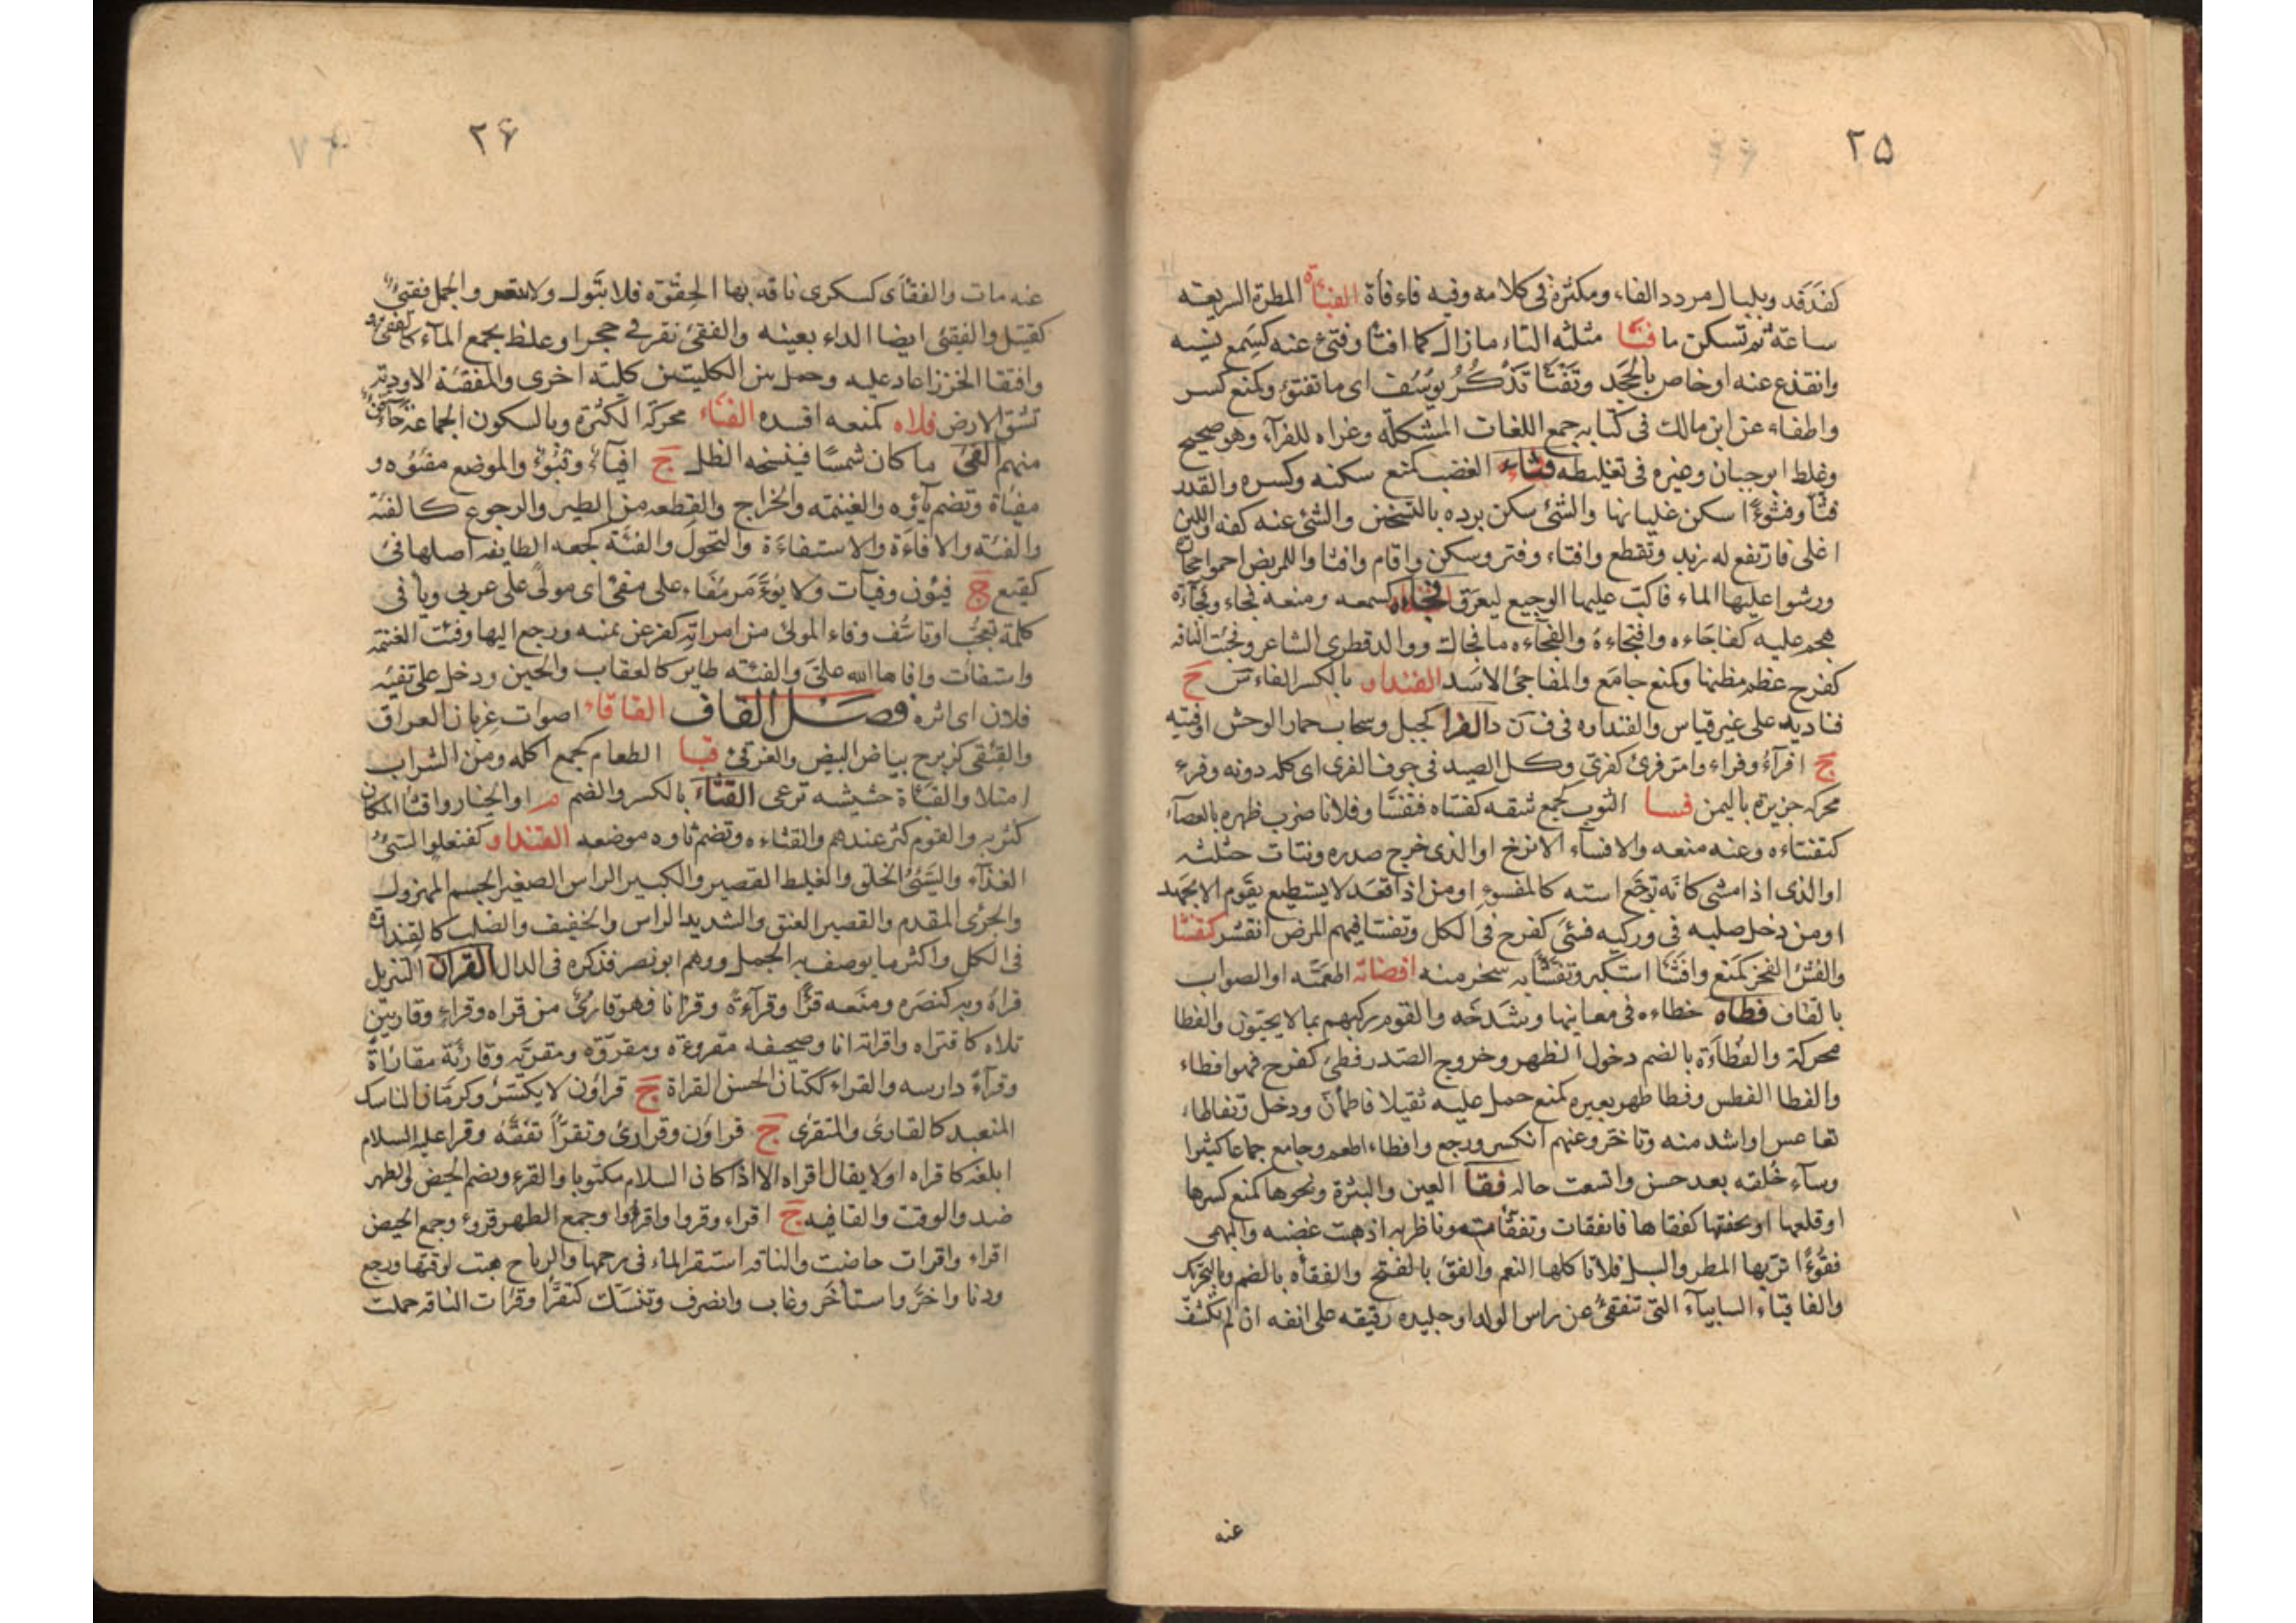 ٢٥
كفدفد وبلبال مردد الفاء ومكثرة في كلامه وفيه فاء فأة الفبأة المطرة السريعة
ساعة ثم تسكن ما فتأ مثلثه التاء مازال كما افتأ وفتئ عنه كسمع نسيه
وانقدع عنه او خاص بالجحد وتفتأ تذكر يوسف اى ما تفتؤ وكمنع كسر
واطفاء عن ابن مالك فى كتابه جمع اللغات المشكلة وعزاه للفراء وهو صحيح
وغلط ابو حيان وغيره فى تغليطه فثاء الغضب كمنع سكنه وكسره والقدر
فثأ وفثوءًا سكن غليانها والشئ سكن برده بالتسخين والشئ عنه كفه واللبن
اغلى فارتفع له زبد وتقطع وافثاء وفتر وسكن واقام وافثا واللمريض احموا حجارة
ورشوا عليها الماء فاكب عليها الوجيع ليعرق فجاه كسمعه ومنعه فجاء وفجآءة
هجم عليه كفاجاءه وافتجاءه والفجآءه ما فجاك ووالد قطرى الشاعر وفجئت الناقه
كفرح عظم بطنها وكمنع جامع والمفاجئ الاسد الفنداو بالكسر الفاءس ج
فناديه على غير قياس والفنداوه فى ف ن د الفرا كجبل وسحاب حمار الوحش او فتيه
ج افرآء وفراء وامر فرئ كفرى وكل الصيد فى جوف الفرى اى كله دونه وفرء
محركه جزيرة باليمن فسا الثوب كجمع شقه كفساه فتفسا وفلانا ضرب ظهره بالعصآء
كتفساءه وعنه منعه والافسآء الابزخ او الذى خرج صدره ونتات خثلته
او الذى اذا مشى كانه توجع استه كالمفسوء او من اذا قعد لا يستطيع يقوم الا بجهد
او من دخل صلبه فى وركيه فسئ كفرح فى الكل وتفسا فيهم المرض انتشر كتفشا
والفشء الفخر كمنع وافشأ استكبر وتفشأ به سخر منه افضاته اطعمته او الصواب
بالقاف فطاه خطاءه فى معاينها وشدخه والقوم ركبهم بما لا يحبون والفطا
محركة والفطاءة بالضم دخول الظهر وخروج الصدر فطئ كفرح فهو افطاء
والفطا الفطس وفطا ظهر بعيره كمنع حمل عليه ثقيلا فاطمأن ودخل وتفاطاء
تقاعس او اشد منه وتاخر وعنهم انكسر ورجع وافطاء اطعم وجامع جماعا كثيرا
وسآء خلقه بعد حسن واتسعت حاله فقأ العين والبثرة ونحوها كمنع كسرها
او قلعها او بخقها كفقاها فانفقات وتفقأت وناظريه اذهب غضبه والبهمى
فقوءًا تربها المطر والسيل فلا تاكلها النعم والفقء بالفتح والفقأه بالضم وبالتحريك
والفاقياء السابيآء التى تنفقئ عن راس الولد او جليده رقيقه على انفه ان لم تكشف
عنه
٢۶
عنه مات والفقأى كسكرى ناقه بها الحقوة فلا تبول ولا تبعر والجمل فقئ
كقتيل والفقئ ايضا الداء بعينه والفقئ نقر فى حجر او غلظ بجمع المآء
وافتقا الخرز اعاد عليه وجعل بين الكليتين كلية اخرى والمفقئة الاودية
تشق الارض فلاه كمنعه افسده الفنآء محركة الكثرة وبالسكون الجماعة جآء
منهم الفئ ما كان شمسًا فينسخه الظل ج افيآء وفيوء والموضع مفيؤه و
مفيأة وتضم ياؤه والغنيمه والخراج والقطعه من الطير والرجوع كالفئة
والفيئة والافاءة والاستفاءة والتحول والفئة كجعه الطايفه اصلها فئ
كفيع ج فيئون وفيآت ولا يؤمر مفاء على مفئ اى مولى على عربى ويا فى
كلمة تعجب او تاسف وفاء المولى من امراته كفر عن يمنه ورجع اليها وفئت الغنيمة
واستفأت وافاها الله على والفيئه طاير كالعقاب والحين ودخل على تفيئه
فلان اى اثره فصــل القاف القاقاء اصوات غربان العراق
والقئقى كزبرج بياض البيض والغرقئ قبا الطعام كجمع اكله ومن الشراب
امتلا والقبأة حشيشه ترعى القثآء بالكسر والضم م او الخيار واقثأ المكان
كثر به والقوم كثر عندهم والقثاءه وتضم ثاوه موضعه القنداو كفنعلو السئ
الغذآء والسئ الخلق والغليظ القصير والكبير الراس الصغير الجسم المهزول
والجرئ المقدم والقصير العنق والشديد الراس والخفيف والصلب كالقنداوة
فى الكل واكثر ما يوصف به الجمل ووهم ابو نصر فذكره فى الدال القرآن التنزيل
قراه وبه كنصره ومنعه قرًأ وقرآءة وقرانا فهو قارئ من قراه وقراء وقاريين
تلاه كاقتراه واقراته انا وصحيفه مقروءة ومقروة ومقرية وقارئة مقارأة
وقرآءً دارسه والقراء ككتان الحسن القراة ج قراؤن لا يكسر وكرمان الناسك
المتعبد كالقارئ والمتقرى ج قراؤن وقرارئ وتقرّأ تفقه وقرا عليه السلام
ابلغه كاقراه او لا يقال اقراه الا اذا كان السلام مكتوبا والقرء ويضم الحيض والطهر
ضد والوقت والقافيه ج اقراء وقروا واقرؤا وجمع الطهر قروء وجمع الحيض
اقراء واقرات حاضت والناقه استقر الماء فى رحمها والرياح هبت لوقتها ورجع
ودنا واخر واستأخر وغاب وانصرف وتنسك كتقرأ وقرأت الناقه حملت